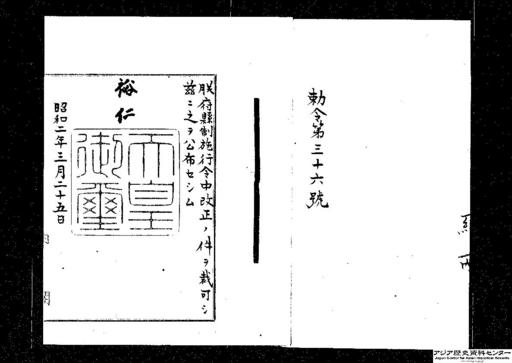 勅令第三十六號
朕府縣制施行令中改正ノ件ヲ裁可シ
玆ニ之ヲ公布セシム
裕仁
天皇
御璽
昭和二年三月二十五日
内閣
アジア歴史資料センター
Japan Center for Asian Historical Records